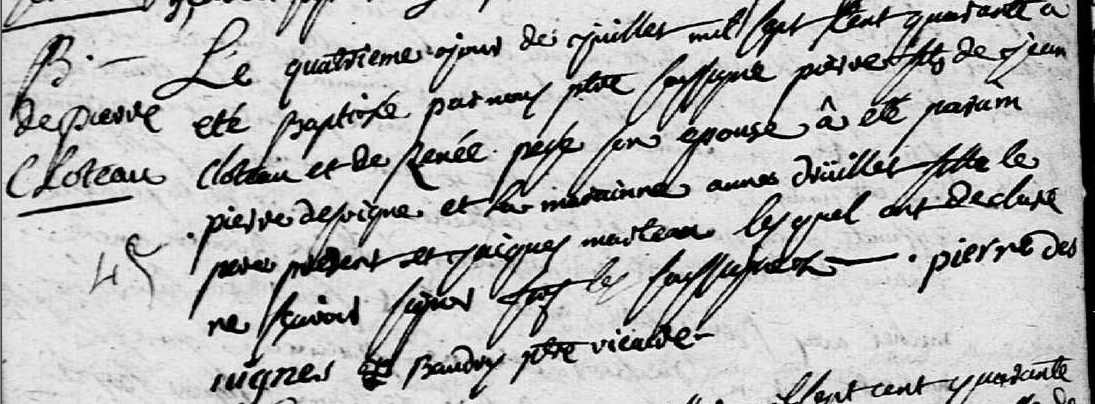 B. –
de pierre
Cloteau
45
Le quatrieme jour de juillet mil sept cent quarante a
eté Baptisé par nous ptre soussigné pierre fils de jean
Cloteau et de Renée son epouse â eté parain
pierre desvigne et la marainne annes drüillet fille le
pere present et jacques marteau lesquel ont declaré
ne sçavoir signer les soussignez — . pierre des
uignes Baudry ptre vicaire –
cent quarante